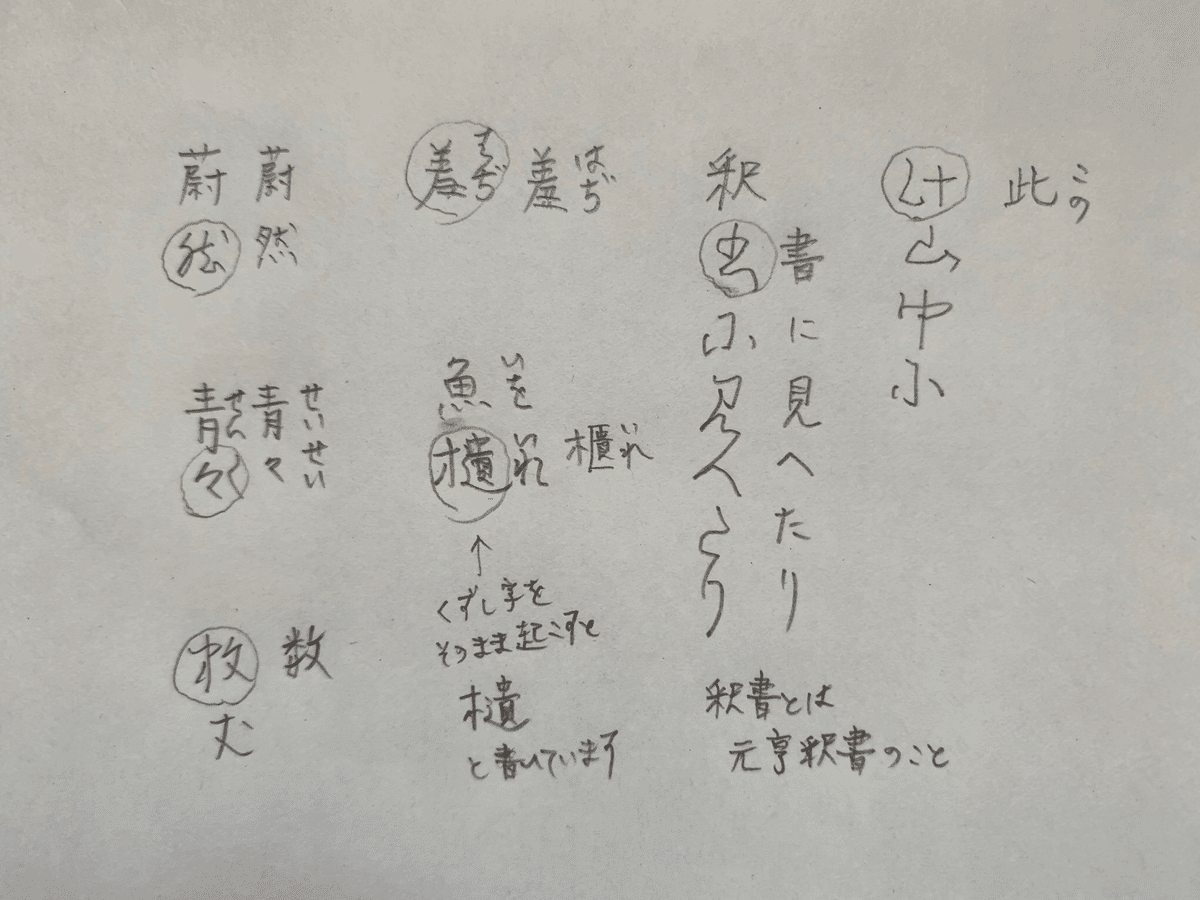 此 この
山中に
釈
書に見へたり
釈書とは
元亨釈書のこと
羞 はぢ
羞 はぢ
魚 いを
櫃 いれ
↑
くずし字を
そのまま起こすと
と書いています
蔚然
蔚然
青々 せいせい
青々 せい〱
数
枚
む